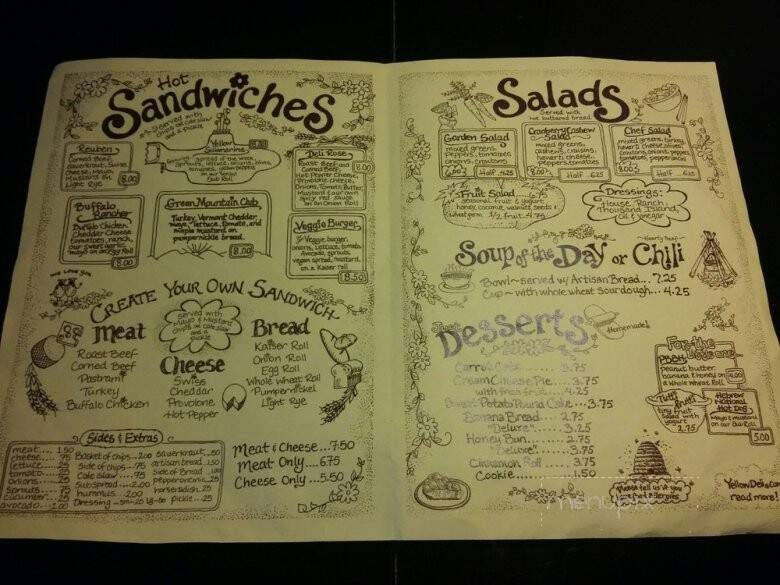 Hot
Sandwiches
Served with
chips or coleslaw
and a Pickle
Reuben
Corned Beef,
Sauerkraut, Swiss
Cheese, Mayo,
Mustard on
Light Rye
8.00
Yellow
Submarine
Sub Roll
Deli Rose
Roast Beef and
Corned Beef,
Hot Pepper Cheese,
Provolone cheese,
Onions, Tomato, Butter,
Mustard & our own
Spicy red sauce
on an Onion Roll
8.00
Buffalo
Rancher
Buffalo Chicken,
Cheddar Cheese
tomatoes, ranch,
mayo on an Egg Roll
8.00
Green Mountain Club
Turkey, Vermont Cheddar,
mayo, lettuce, tomato, and
maple mustard on
pumpernickel bread
8.00
Veggie Burger
Veggie burger,
onions, lettuce, tomato,
Avocado, sprouts,
vegan spread, mustard,
on a Kaiser Roll
8.50
We Love You
Create Your Own Sandwich~
Served with
Mayo & Mustard
Chips or cole slaw
and a
Pickle
Meat
Roast Beef
Corned Beef
Pastrami
Turkey
Buffalo Chicken
Cheese
Swiss
Cheddar
Provolone
Hot Pepper
Bread
Kaiser Roll
Onion Roll
Egg Roll
Whole Wheat Roll
Pumpernickel
Light Rye
Sides & Extras
meat.... 1.50
cheese... .75
lettuce... .25
tomato... .25
onions... .25
Sprouts... .75
cucumber .25
avocado.. 1.00
Basket of chips... 2.00
Side of chips... .75
Cole Slaw... .75
Sub Spread... 2.00
hummus... 2.00
Dressing
sauerkraut .50
artisan bread 1.50
Side of Bread 1.00
pepperoncini .25
horseradish .25
pickle .25
Meat & Cheese...7.50
Meat Only....6.75
Cheese Only...5.50
Salads
Served with
hot buttered bread
Garden Salad
mixed greens,
Peppers, tomatoes
onions, croutons
6.00 Half .. 4.25
Cranberry Cashew
Salad
mixed greens,
cashews, craisins,
havarti cheese,
peppers, tomatoes
8.00 Half ..6.25
Chef Salad
mixed greens, turkey,
havarti cheese, olives,
croutons, onions, peppers
tomatoes, pepperoncini
8.00 Half ...6.25
Fruit Salad
seasonal fruit & yogurt
honey, coconut, walnuts, seeds &
wheat germ 1/2 fruit 4.75
Dressings:
House Ranch,
Thousand Island,
Oil & vinegar
Soup of the Day or Chili
Bowl~served w/ Artisan Bread... 7.25
Cup~with whole wheat sourdough... 4.25
Desserts
Homemade!
Carrot Cake..... 3.75
Cream Cheese Pie.... 3.75
with fresh fruit.. 4.25
Sweet Potato Pound Cake....3.75
Banana Bread.... 2.75
"Deluxe".... 3.25
Honey Bun..... 2.75
"Deluxe".... 3.25
Cinnamon Roll.... 3.75
Cookie............ 1.50
For the
PBBH
Peanut butter
banana & honey on
a Whole Wheat Roll
4.00
Tutti Frutti
tiny fruit
salad with
yogurt
2.75
Hebrew
National
Hot Dog
Mayo & mustard
on our Bun Roll
5.00
Please tell us if you
have food allergies
YellowDeli.com
read more!